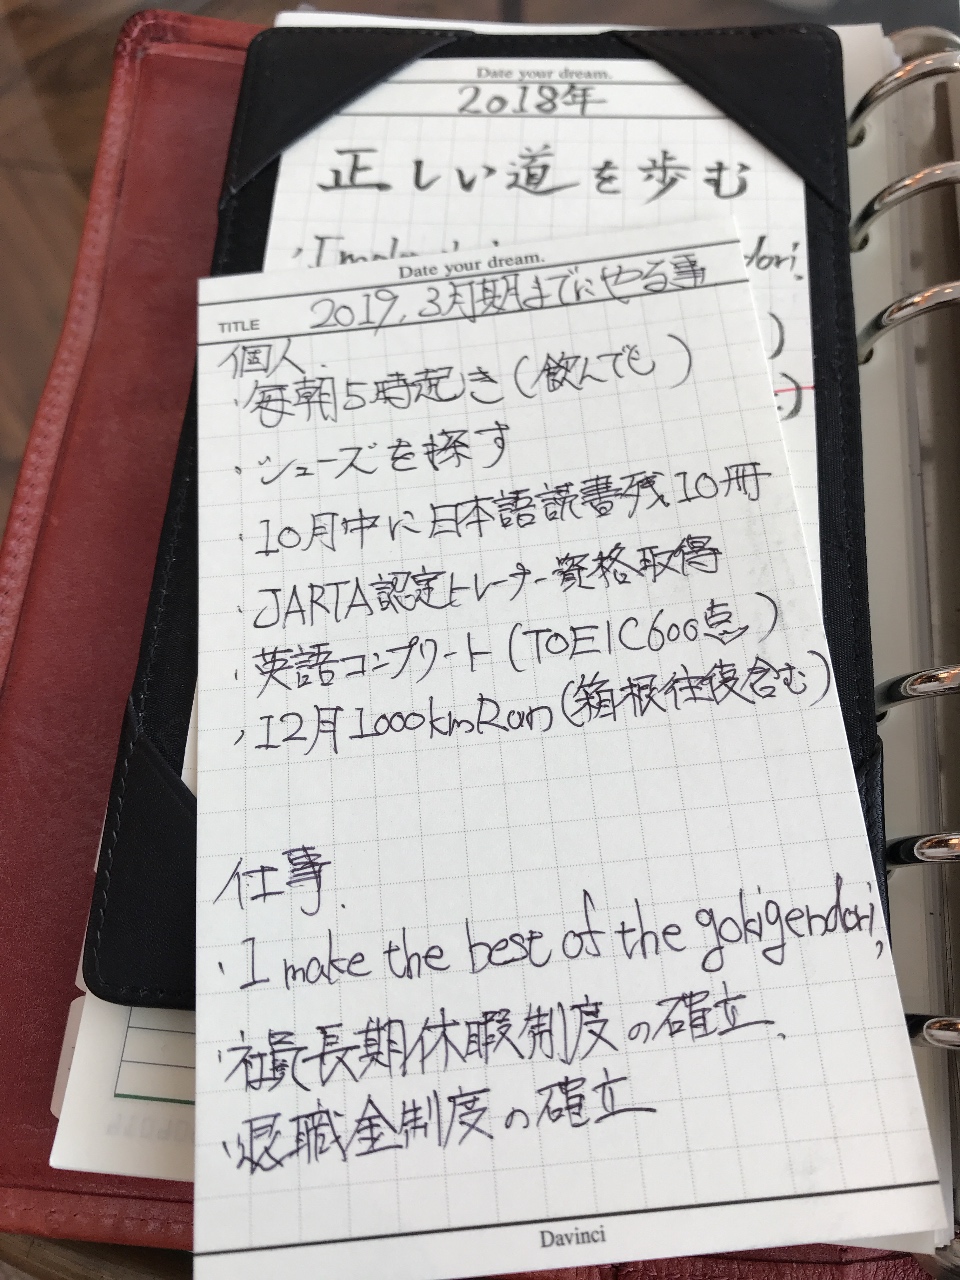 Date your dream.
2018年
正しい道を歩む
dori.
)
)
Date your dream.
TITLE 2019.3月期までにやる事
個人.
・毎朝5時起き(飲んでも)
・シューズを探す
・10月中に日本語読書残10冊
・JARTA認定トレーナー資格取得
・英語コンプリート(TOEIC600点)
・12月1000kmRun(箱根往復含む)
仕事.
・I make the best of the gokigendori,
・社員長期休暇制度の確立、
・退職金制度の確立
Davinci